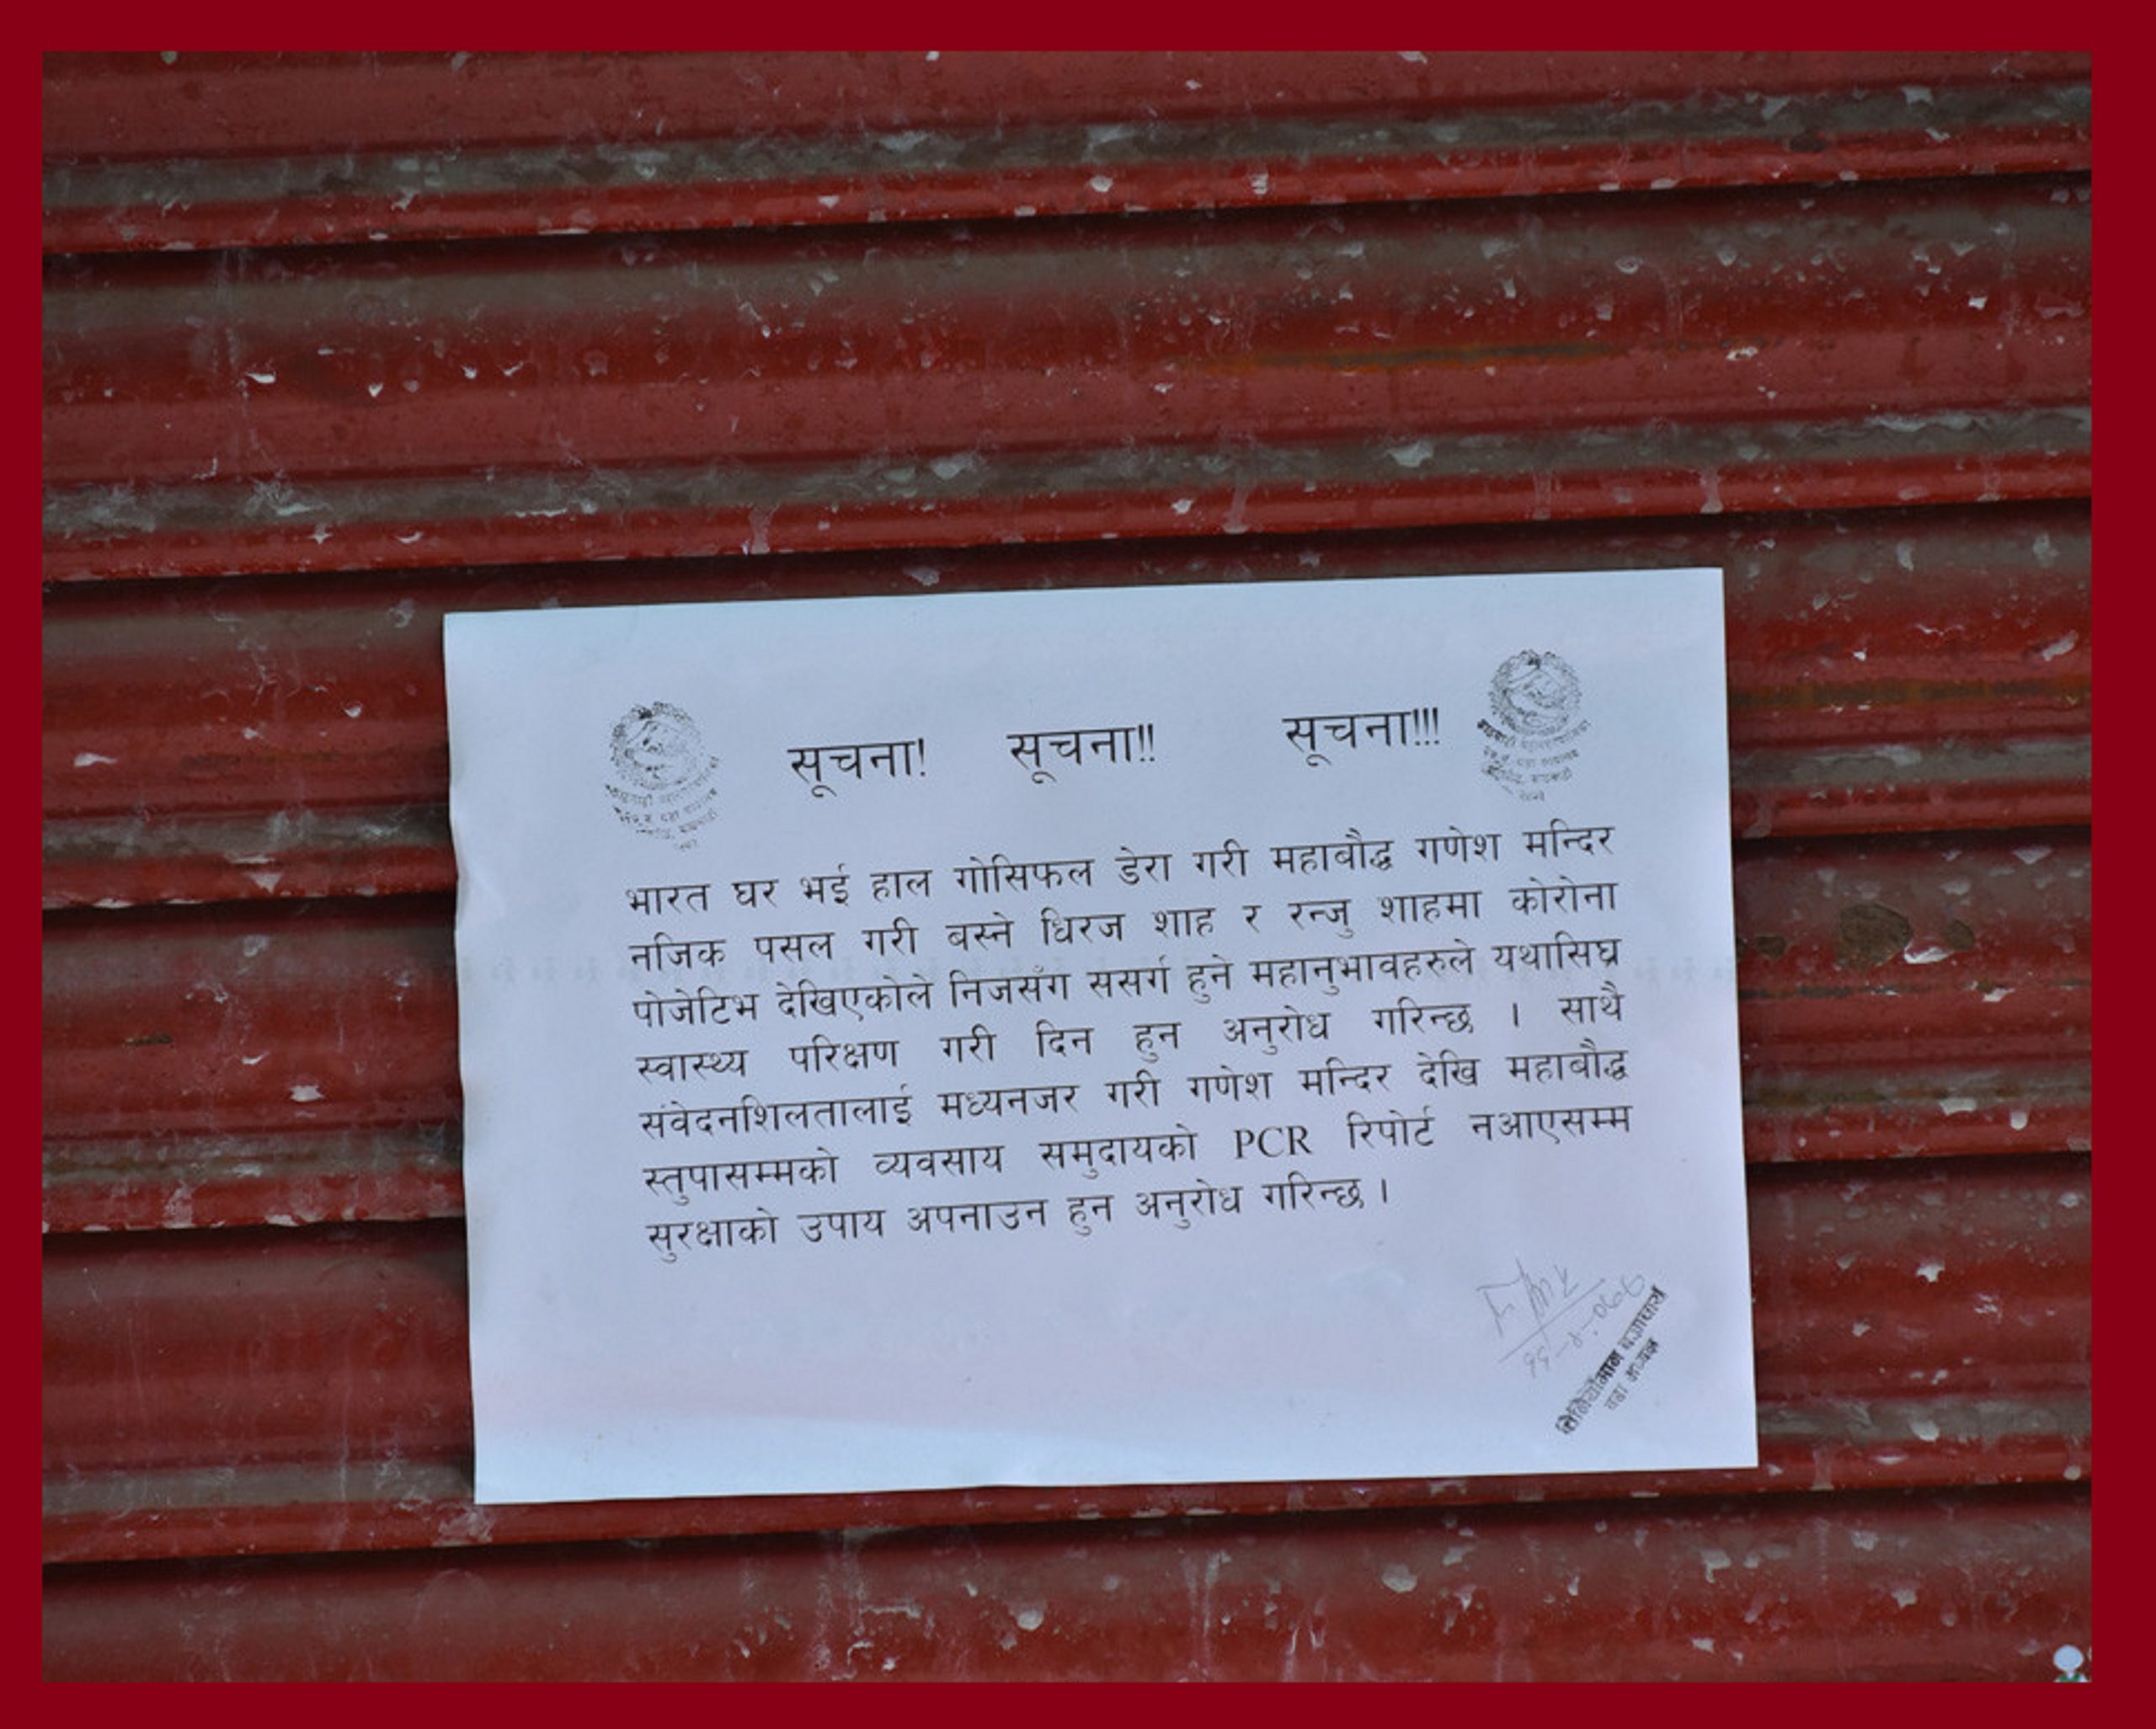 सूचना! सूचना!! सूचना!!!
भारत घर भई हाल गोसिफल डेरा गरी महाबौद्ध गणेश मन्दिर
नजिक पसल गरी बस्ने धिरज शाह र रन्जु शाहमा कोरोना
पोजेटिभ देखिएकोले निजसँग ससर्ग हुने महानुभावहरुले यथासिघ्र
स्वास्थ्य परिक्षण गरी दिन हुन अनुरोध गरिन्छ । साथै
संवेदनशिलतालाई मध्यनजर गरी गणेश मन्दिर देखि महाबौद्ध
स्तुपासम्मको व्यवसाय समुदायको PCR रिपोर्ट नआएसम्म
सुरक्षाको उपाय अपनाउन हुन अनुरोध गरिन्छ ।
वडा अध्यक्ष